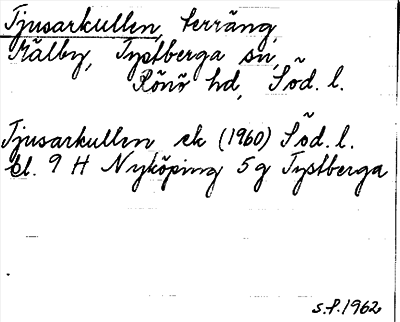 Tjusarkullen, terräng,
Mälby, Tystberga sn,
Rönö hd, Söd. l.
Tjusarkullen ek (1960) Söd. l.
bl. 9 H Nyköping 5 g Tystberga
s.f. 1962